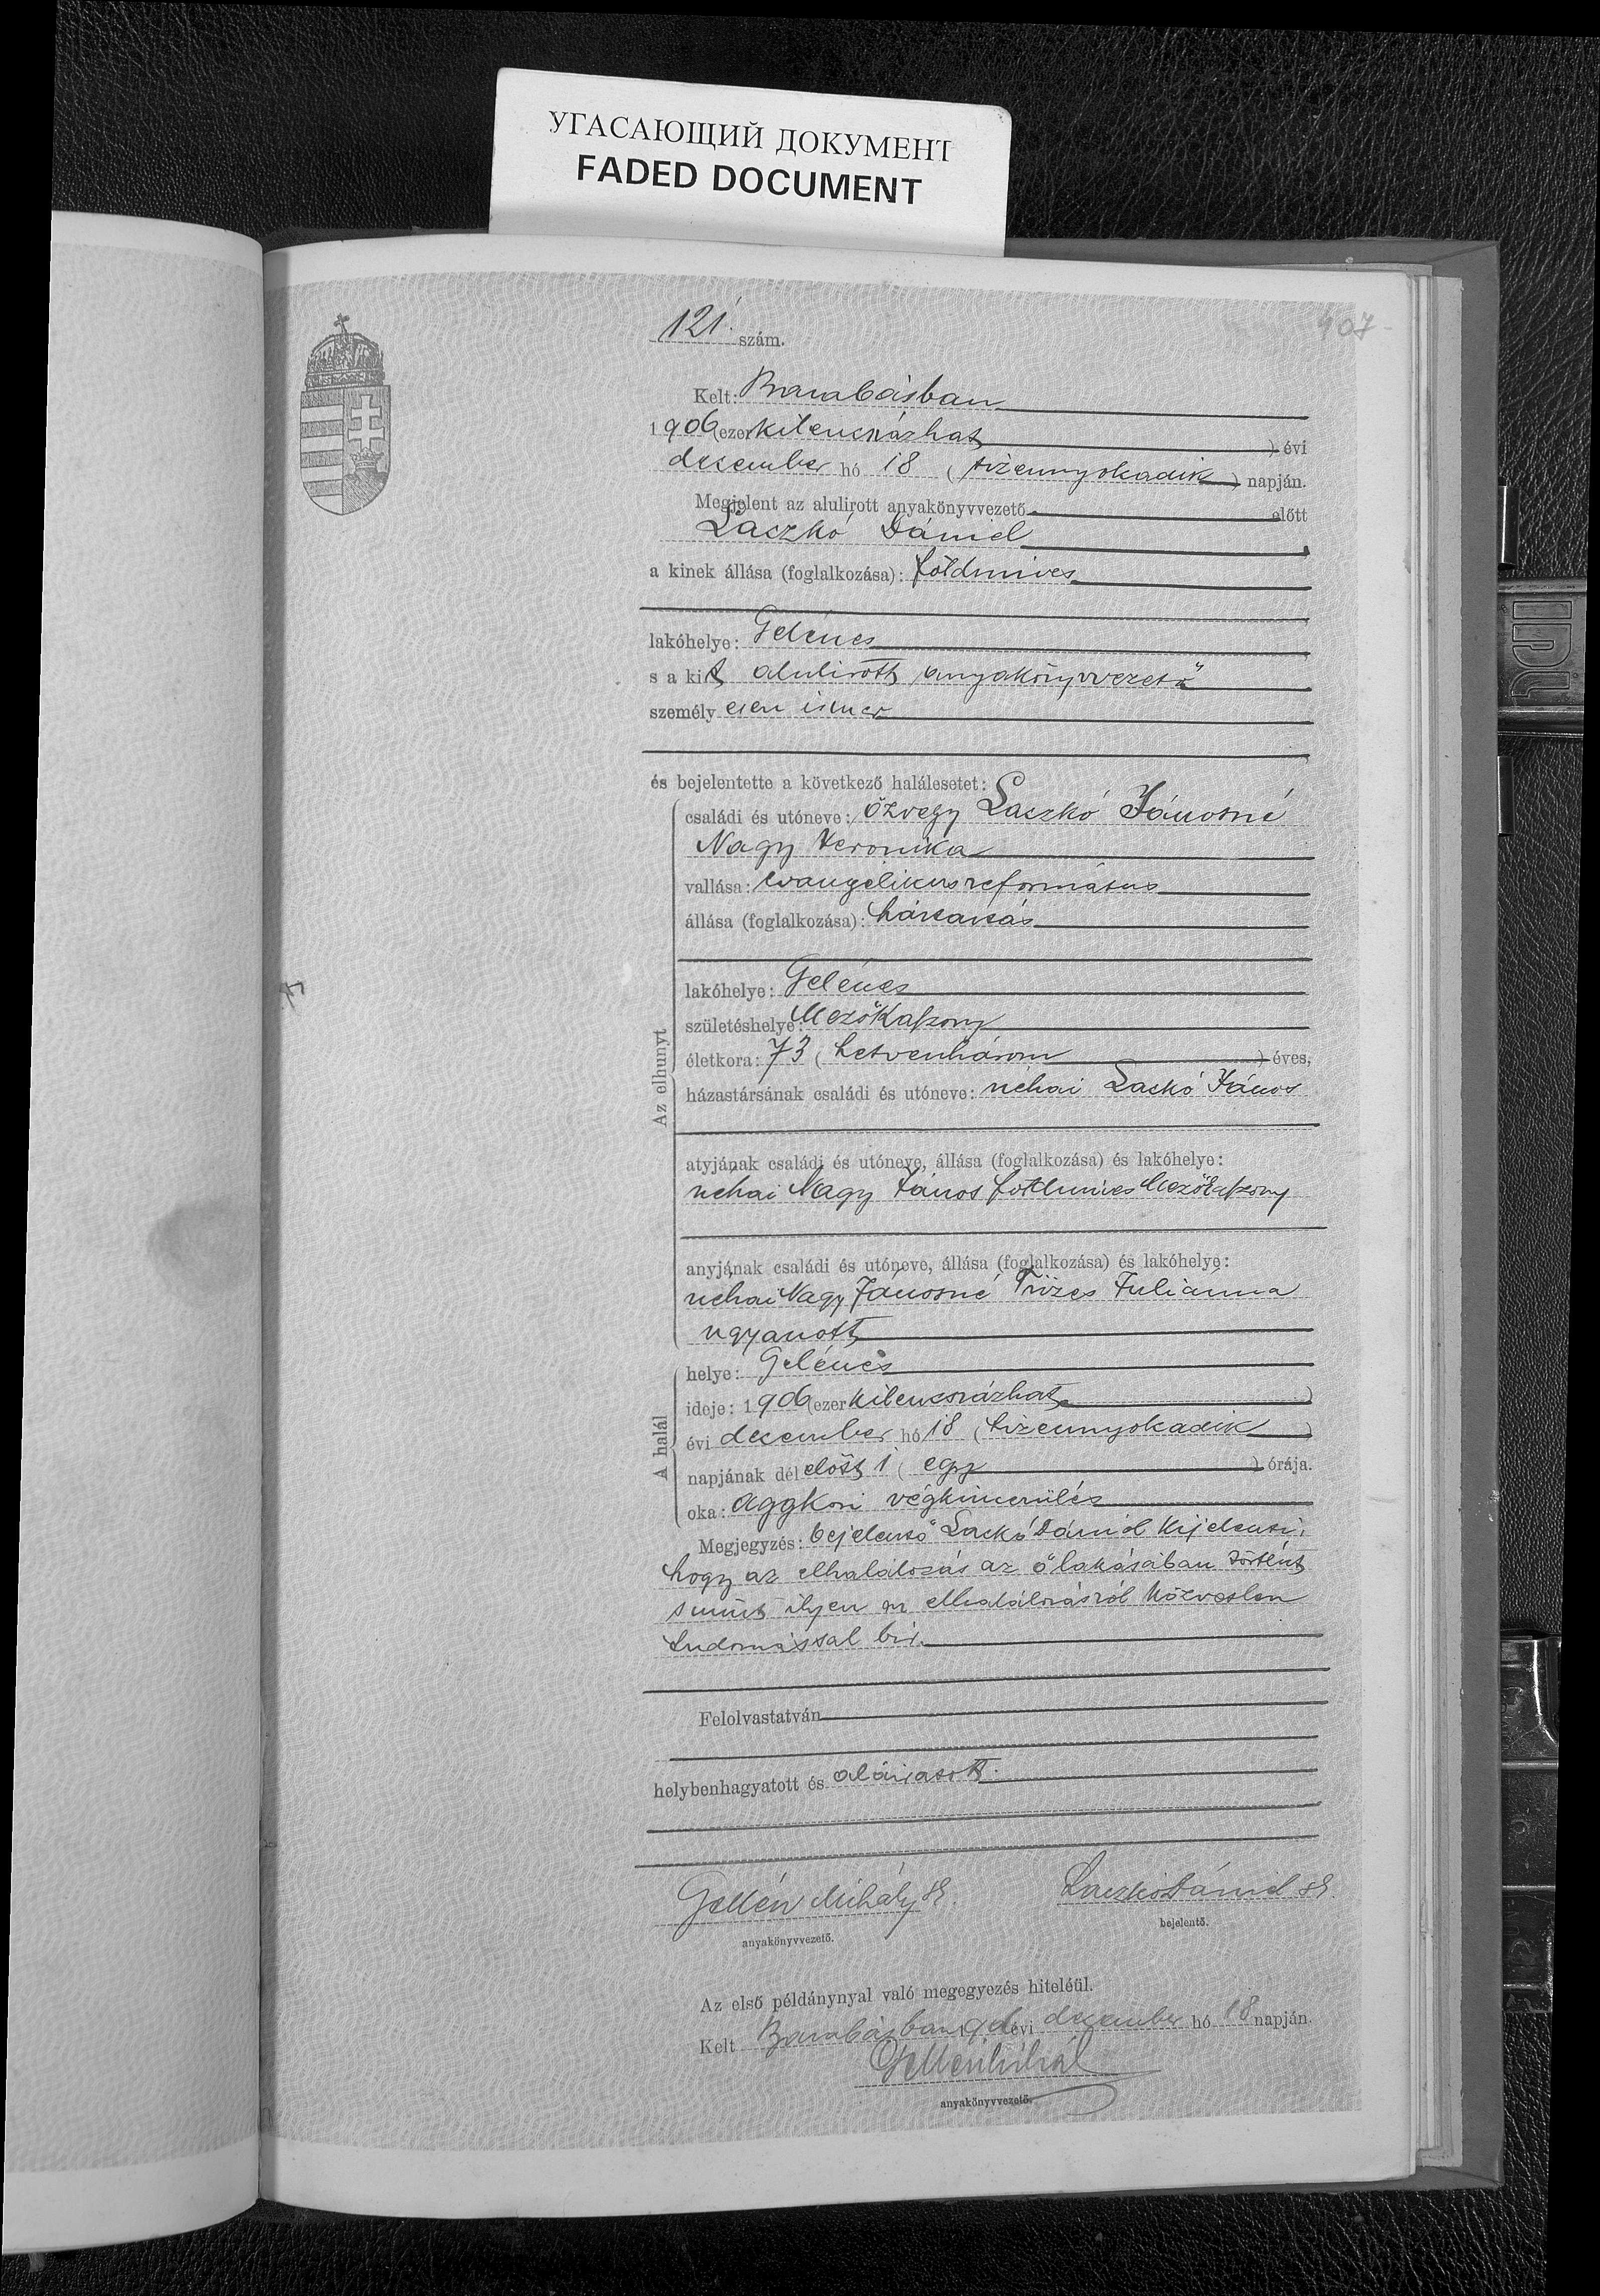 УГАСАЮЩИЙ ДОКУМЕНТ
FADED DOCUMENT
121. szám.
907
Kelt: Barabásban
1906 (ezer kilencszázhat) évi
december hó 18 (tizennyolcadik) napján.
Megjelent az alulirott anyakönyvvezető előtt
Laczkó Dániel
a kinek állása (foglalkozása): földmives
lakóhelye: Gelénes
s a kit alulirott anyakönyvvezető
személyesen ismer
és bejelentette a következő halálesetet:
Az elhunyt
családi és utóneve: özvegy Laczkó Jánosné
Nagy Veronika
vallása: evangelikus református
állása (foglalkozása): háztartás
lakóhelye: Gelénes
születéshelye: Mezőkaszony
életkora: 73 (hetvenhárom) éves,
házastársának családi és utóneve: néhai Lackó János
atyjának családi és utóneve, állása (foglalkozása) és lakóhelye:
néhai Nagy János földmives Mezőkaszony
anyjának családi és utóneve, állása (foglalkozása) és lakóhelye:
néhai Nagy Jánosné Füzes Juliánna
ugyanott
A halál
helye: Gelénes
ideje: 1906 (ezer kilencszázhat)
évi december hó 18 (tizennyolcadik)
napjának dél előtt 1 (egy) órája.
oka: aggkori végkimerülés
Megjegyzés: bejelentő Lackó Dániel kijelenti,
hogy az elhalálozás az ő lakásában történt
s mint ilyen az elhalálozásról közvetlen
tudomással bir.
Felolvastatván
helybenhagyatott és aláiratott.
Gellén Mihály sk. Laczkó Dániel sk.
anyakönyvvezető. bejelentő.
Az első példánynyal való megegyezés hiteléül.
Kelt Barabásban 1906 évi december hó 18 napján.
Gellén Mihál
anyakönyvvezető.